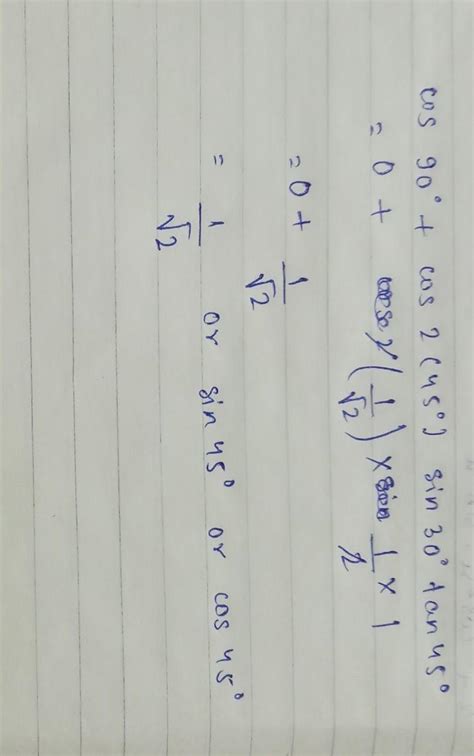 cos 90° + cos 2(45°) sin 30° tan 45°
= 0 + 2(1/√2) × 1/2 × 1
= 0 + 1/√2
= 1/√2 or sin 45° or cos 45°